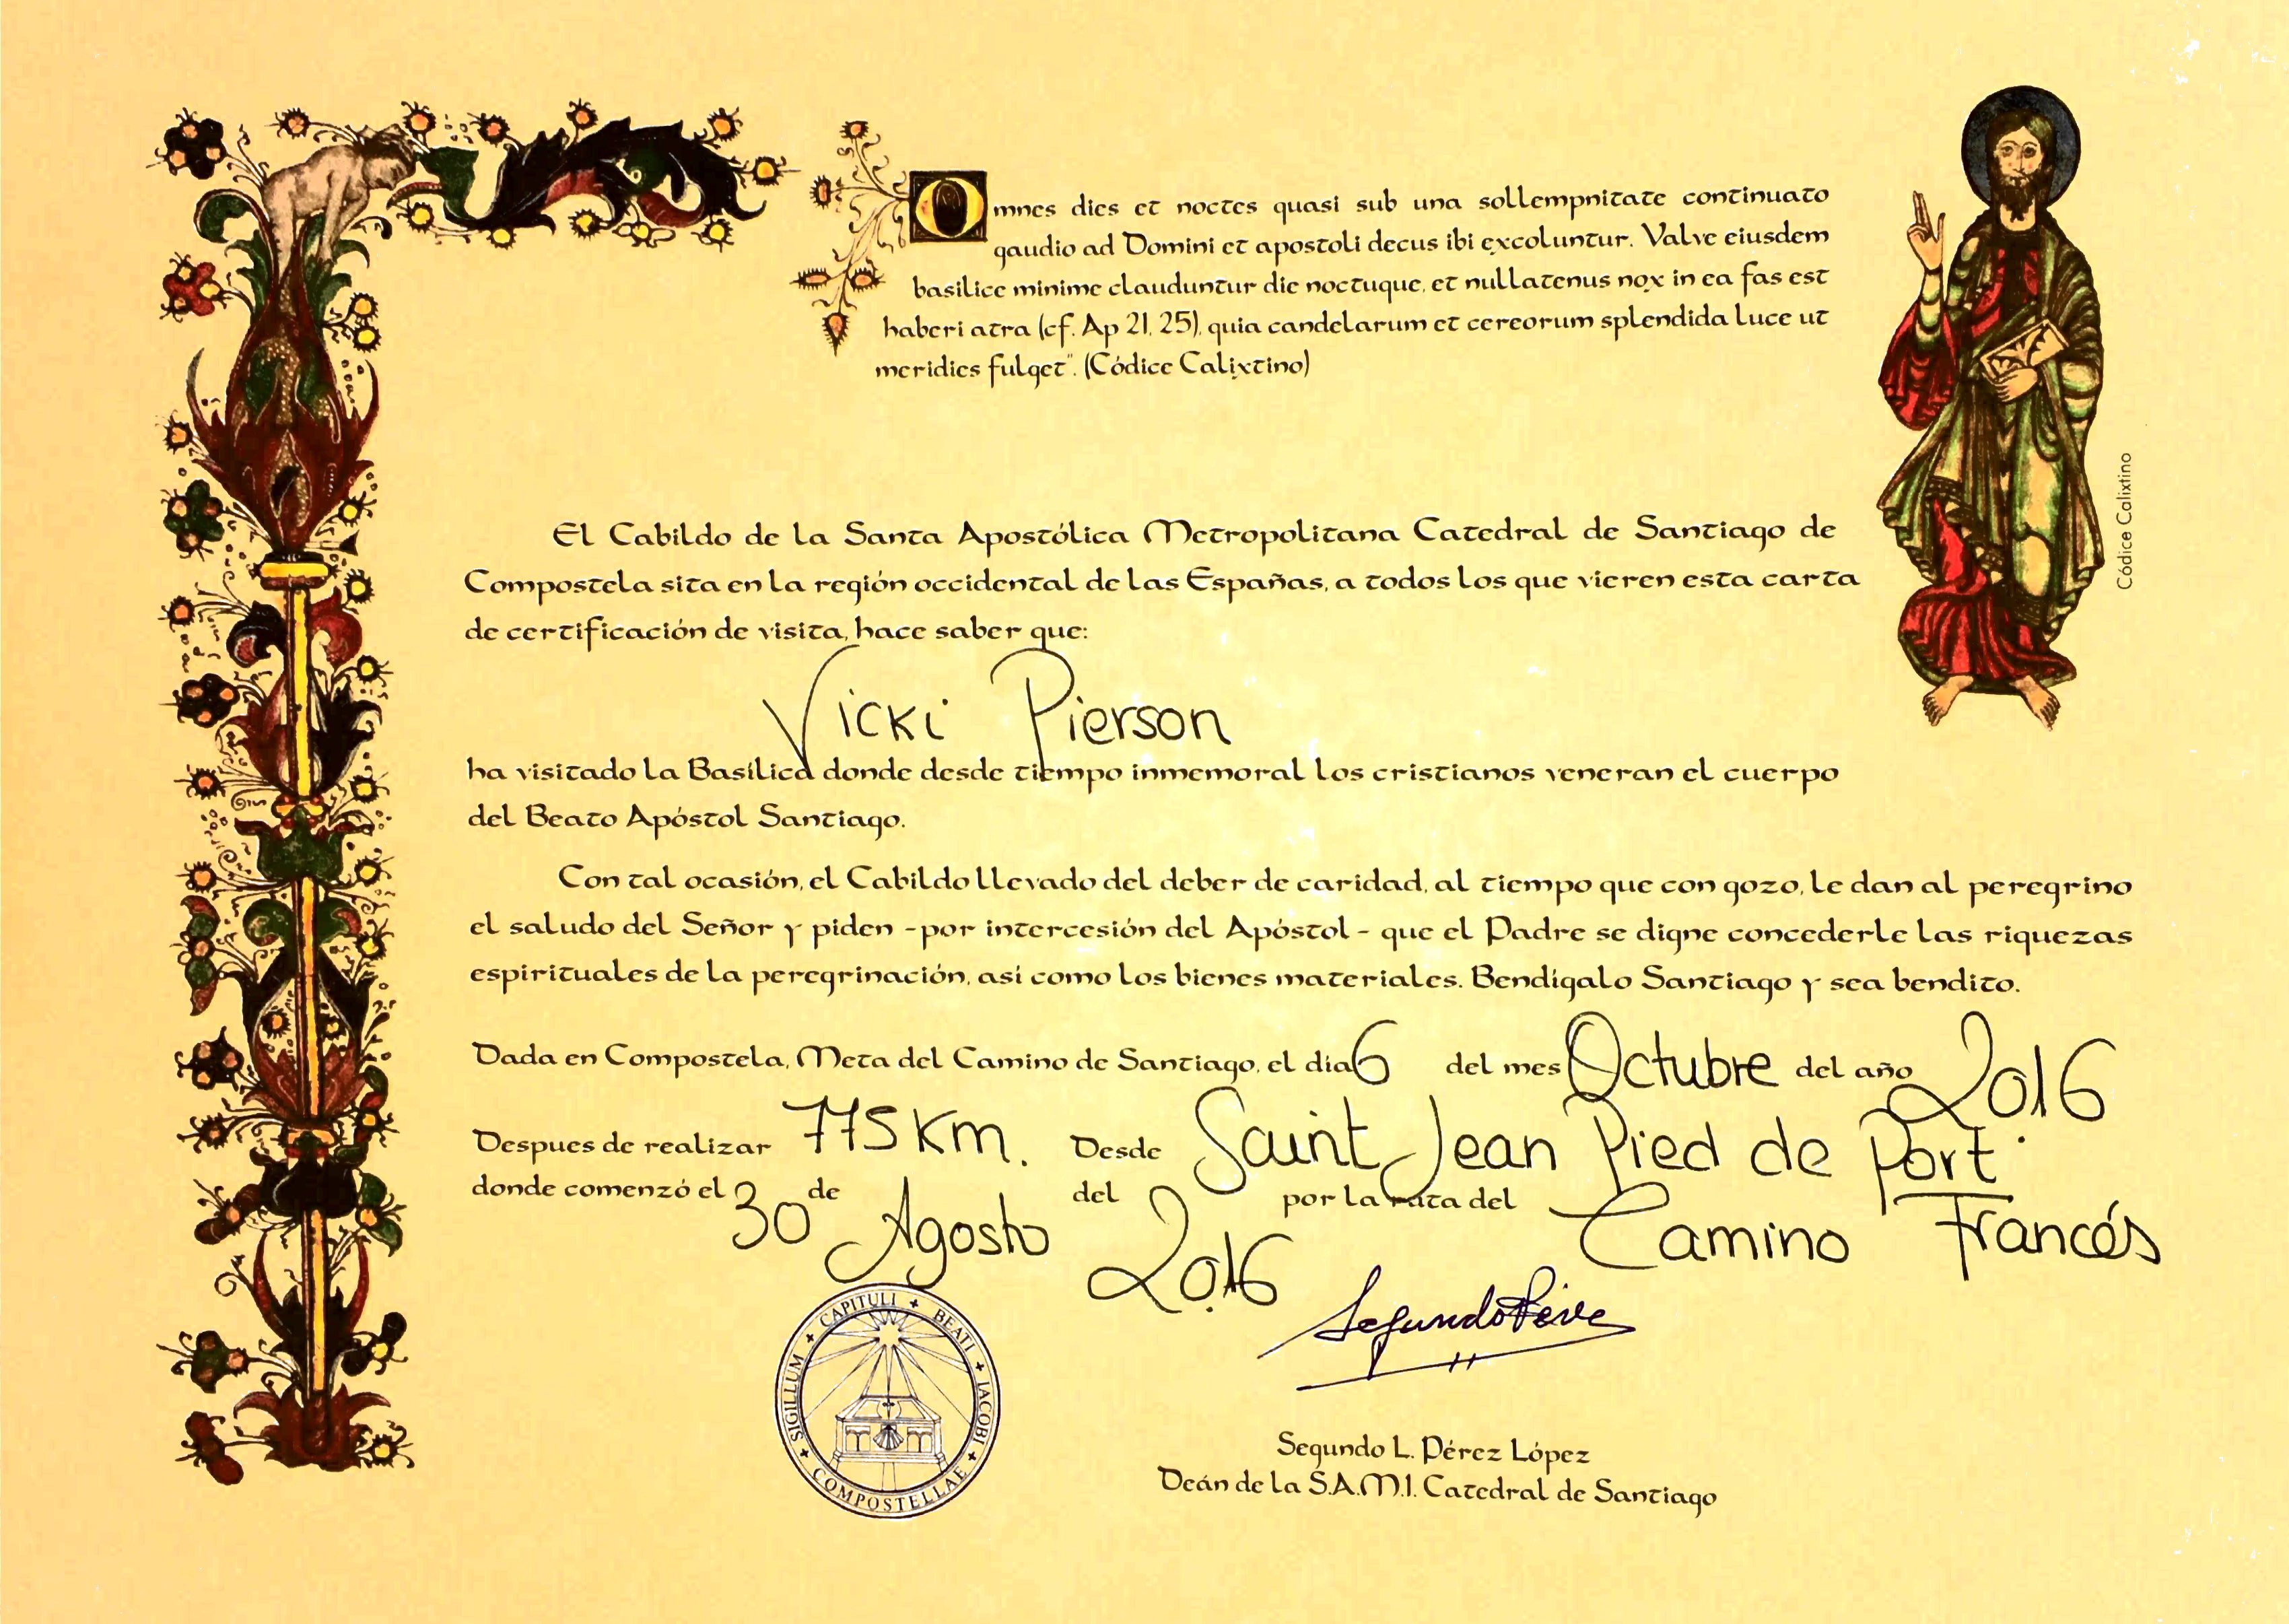 Omnes dies et noctes quasi sub una sollempnitate continuato
gaudio ad Domini et apostoli decus ibi excoluntur. Valve eiusdem
basilice minime clauduntur die noctuque, et nullatenus nox in ea fas est
haberi atra (cf. Ap 21, 25), quia candelarum et cereorum splendida luce ut
meridies fulget". (Códice Calixtino)
Códice Calixtino
El Cabildo de la Santa Apostólica Metropolitana Catedral de Santiago de
Compostela sita en la región occidental de las Españas, a todos los que vieren esta carta
de certificación de visita, hace saber que:
Vicki Pierson
ha visitado la Basílica donde desde tiempo inmemoral los cristianos veneran el cuerpo
del Beato Apóstol Santiago.
Con tal ocasión, el Cabildo llevado del deber de caridad, al tiempo que con gozo, le dan al peregrino
el saludo del Señor y piden -por intercesión del Apóstol- que el Padre se digne concederle las riquezas
espirituales de la peregrinación, así como los bienes materiales. Bendígalo Santiago y sea bendito.
Dada en Compostela, Meta del Camino de Santiago, el día 6 del mes Octubre del año 2016
Despues de realizar 775 Km. Desde Saint Jean Pied de Port.
donde comenzó el 30 de Agosto del 2016 por la ruta del Camino Francés
SIGILLUM + CAPITULI + BEATI + IACOBI + COMPOSTELLAE +
Segundo Pérez
Segundo L. Pérez López
Deán de la S.A.M.I. Catedral de Santiago